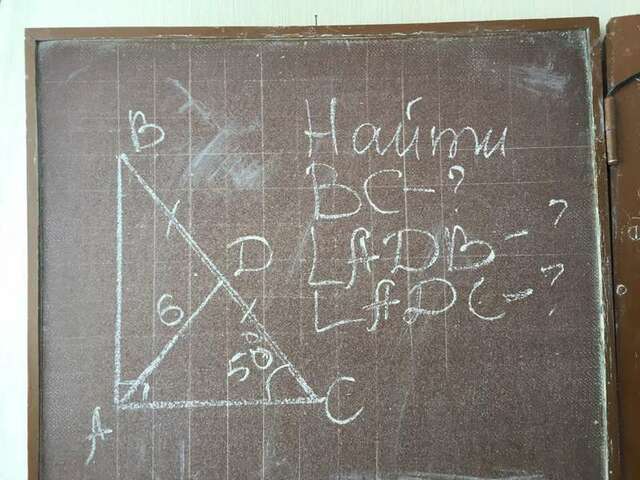 Найти
BC-?
∟ADB-?
∟ADC-?
B
D
6
50°
A
C